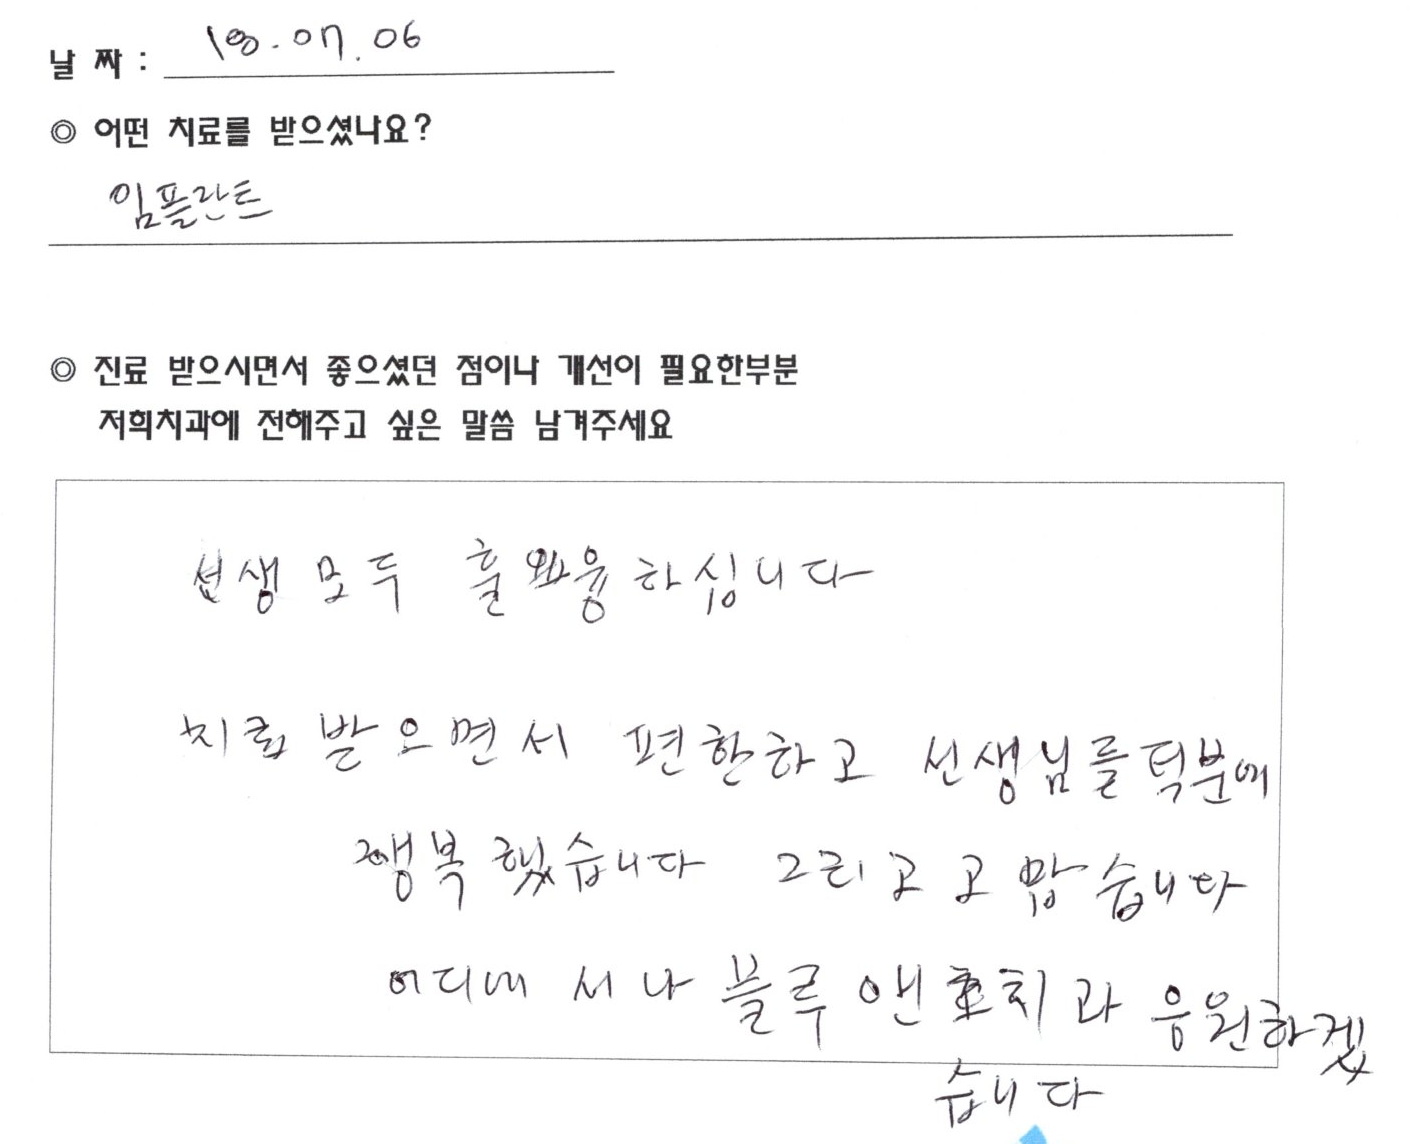 날 짜 : 18.07.06
◎ 어떤 치료를 받으셨나요?
임플란트
◎ 진료 받으시면서 좋으셨던 점이나 개선이 필요한부분
저희치과에 전해주고 싶은 말씀 남겨주세요
선생 모두 훌륭하십니다
치료 받으면서 편한하고 선생님를 턱분에
행복했습니다 그리고 고맙습니다
어디에 서나 블루앤 치과 응원하겠
습니다